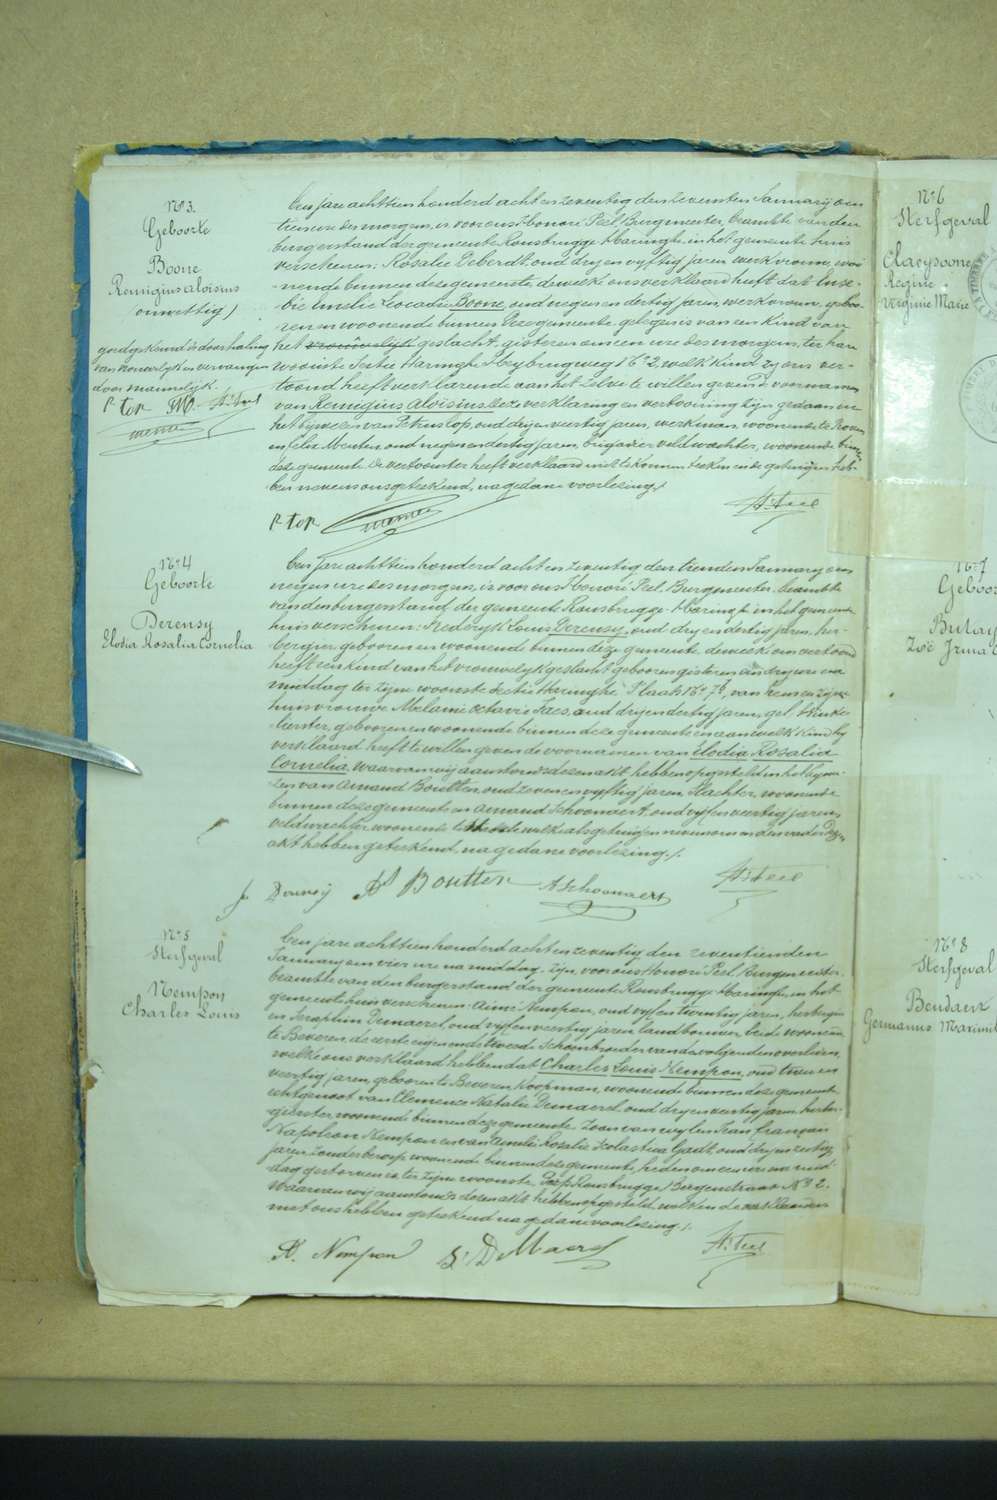 N° 3.
Geboorte
Boone
Remigius aloisius
(onwettig)
goedgekeurd de doorhaling
van vrouwelijk en vervangen
door mannelijk.
Een jare achttien honderd acht en zeventig den zevensten January om
tien ure des morgens, is voor ons Honoré Peel, Burgmeester, beambte van den
burgerstand der gemeente Rousbrugge-Haringhe, in het gemeente huis
verschenen: Rosalie Deberdt, oud dry en vyftig jaren, werkvrouw, woo-
nende binnen deze gemeente, dewelke ons verklaard heeft dat Euse-
bie Amelie Leocadie Boone, oud negen en dertig jaren, werkvrouw, geboo-
ren en woonende binnen deze gemeente, gelegen is van een kind van
het vrouwelyk geslacht, gisteren om een ure des morgens, ter hare
wooniste Sectie Haringhe Heybrugweg 16° 2, welk kind zy ons ver-
toond heeft verklarende aan het zelve te willen geven de voornamen
van Remigius Aloisius. Deze verklaring en vertooning zyn gedaan in
het bywezen van oud dry en veertig jaren, werkman, woonende te Proven
en Felix Meuten, oud negen en dertig jaren, brigadier veldwachter, woonende binnen
deze gemeente. De vertoonster heeft verklaard niet te konnen teeken en de getuigen heb-
ben nevens ons geteekend, na gedane voorlezing./.
P ter
N° 4
Geboorte
Derensy
Elodia Rosalia Cornelia
Een jare achttien honderd acht en zeventig den tienden January om
negen ure des morgens, is voor ons Honoré Peel, Burgemeester, beambte
van den burgerstand der gemeente Rousbrugge-Haringhe in het gemeente
huis verschenen: Frederyk Louis Derensy, oud dry en dertig jaren, her-
bergier, gebooren en woonende binnen deze gemeente, dewelke ons vertoond
heeft een kind van het vrouwelyk geslacht gebooren gisteren om dry ure na
middag ter zyne wooniste Sectie Haringhe Plaats 16° 7b, van hem en zyne
huisvrouwe Melanie Octavie Faes, oud dry en dertig jaren,
gebooren en woonende binnen deze gemeente en aan welk kind hy
verklaard heeft te willen geven de voornamen van Elodia Rosalia
Cornelia. waarvan wy aanstonds dezen akt hebben opgesteld in het bywe-
zen van Amand Boutten, oud zeven en vyftig jaren, slachter, woonende
binnen deze gemeente en Amand Schoonaert, oud vyf en veertig jaren
veldwachter, woonende te welke als getuigen nevens ons en den vader dezen
akt hebben geteekend, na gedane voorlezing./.
Boutten A Schoonaert
N° 5
Sterfgeval
Nempon
Charles Louis
Een jare achttien honderd acht en zeventig den zeventienden
January om vier ure na middag, zyn voor ons Honoré Peel, Burgemeester
beambte van den burgerstand der gemeente Rousbrugge-Haringhe, in het
gemeente huis verschenen: Aimé Nempon, oud vyf en twintig jaren, herbergier
en Seraphin Demaerel, oud vyf en veertig jaren landbouwer, beide woonende
te Beveren, de eerste eigen en de tweede Schoonbroeder van de volgende overleden,
welke ons verklaard hebben dat Charles Louis Nempon, oud twee en
veertig jaren, gebooren te Beveren, Koopman, woonende binnen deze gemeente
echtgenoot van Clemence Natalie Demaerel, oud dry en veertig jaren, herber-
gierster, woonende binnen deze gemeente, zoon van wylen Jean françois
Napoleon Nempon en van Amelie Rosalie Scolastica Gadt, oud dry en zestig
jaren zonder beroep woonende binnen deze gemeente, heden om een ure na mid-
dag gestorven is ter zyne wooniste, Dorp Rousbrugge, Bergenstraat N° 2.
Waarvan wy aanstonds dezen akt hebben opgesteld, welken de verklaarders
met ons hebben geteekend na gedane voorlezing./.
A. Nempon S. D Maerel
N° 6
Sterfgeval
Claeysoone
Regine
Virginie Marie
N° 7
Geboor
Butay
Zoë Irma
N° 8
Sterfgeval
Beudaert
Germanus Maximil